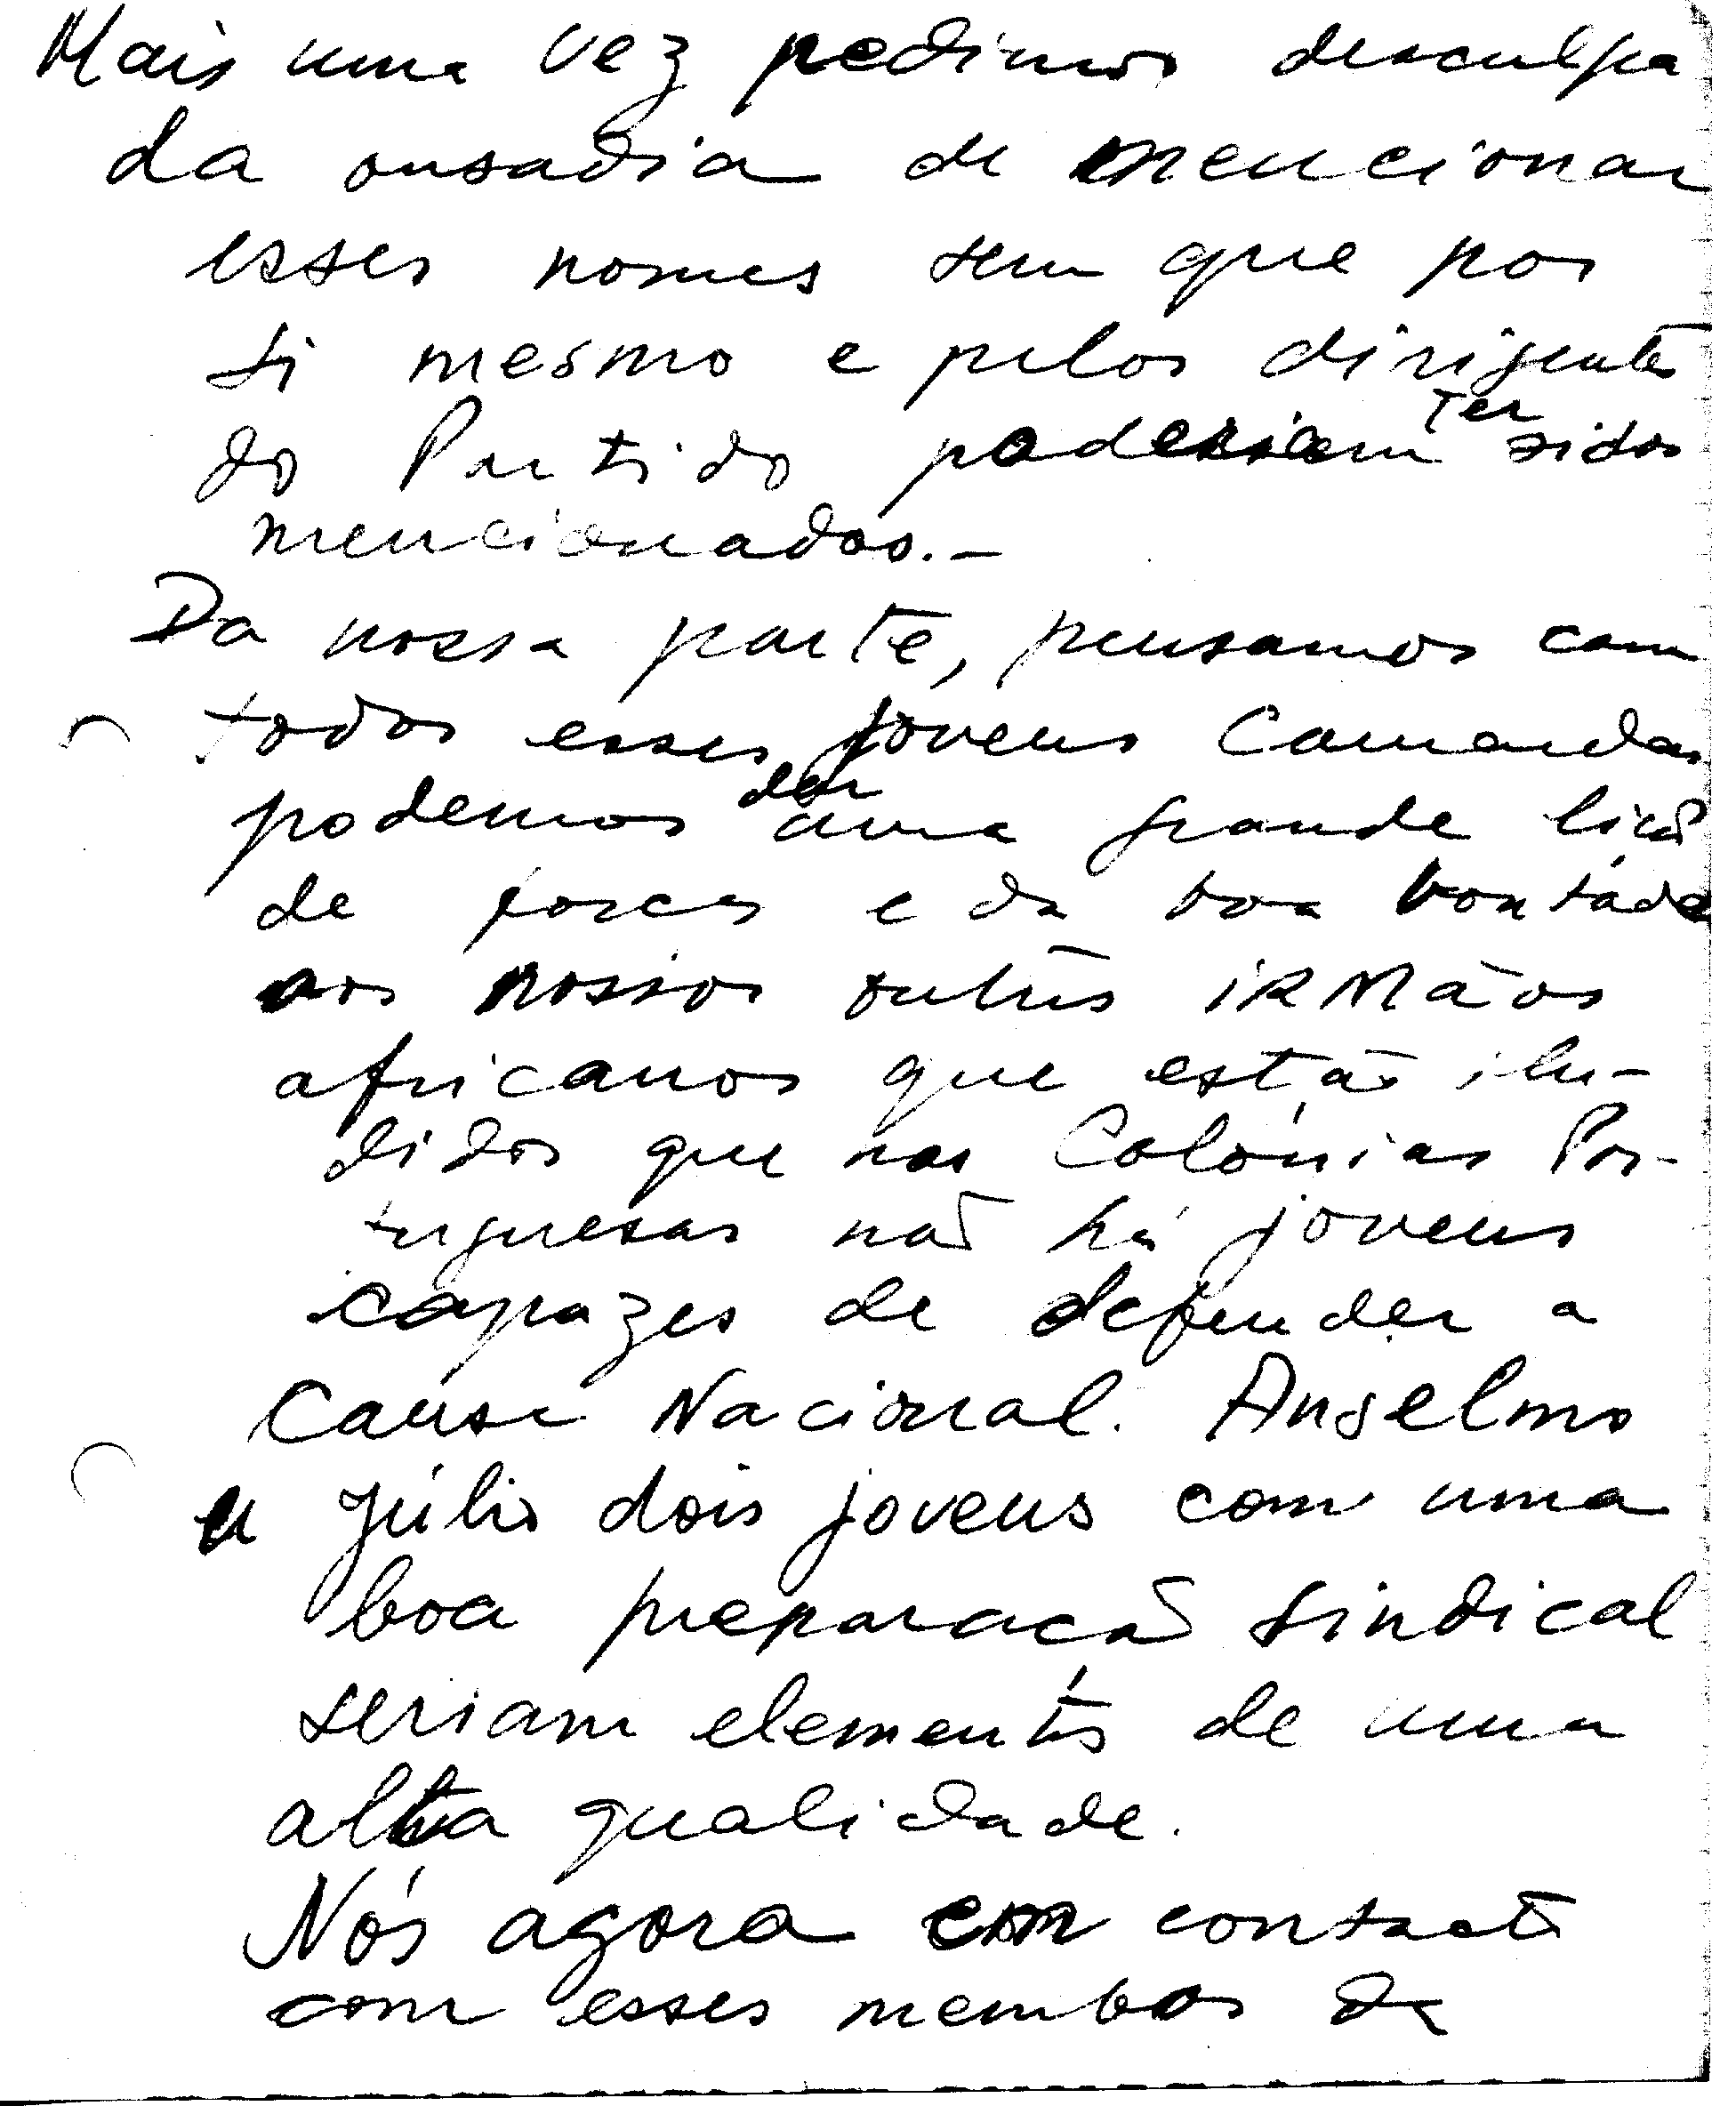 Mais uma vez pedimos desculpa
da ousadia de mencionar
esses nomes sem que por
si mesmo e pelos dirigentes
do Partido poderiam ter sidos
mencionados.-
Da nossa parte, pensamos com
todos esses jovens Camaradas
podemos dar uma grande licão
de forças e da boa vontade
aos nossos outros iRMãos
africanos que estão ilu-
didos que nas Colónias Por-
tuguesas não há jovens
capazes de defender a
Causa Nacional. Anselmo
e Júlio dois jovens com uma
boa preparacão sindical
seriam elementos de uma
alta qualidade.
Nós agora em contacto
com esses membos da